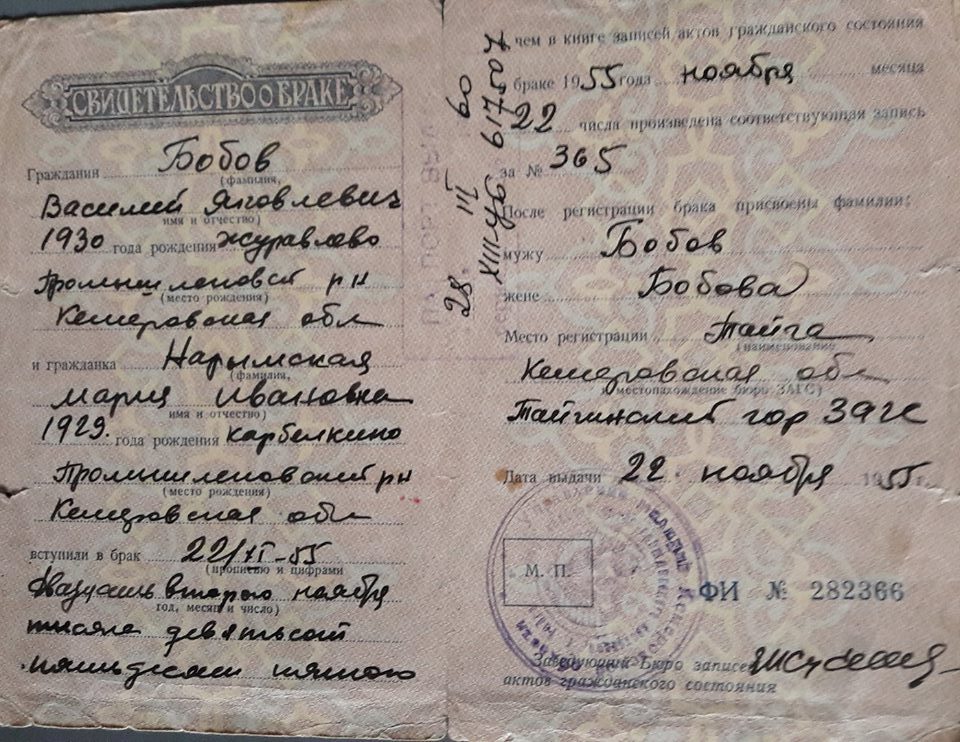 СВИДЕТЕЛЬСТВО О БРАКЕ
Гражданин Бобов
(фамилия,
Василий Яковлевич
имя и отчество)
1930 года рождения Журавлево
Промышленовск р н
(место рождения)
Кемеровская обл
и гражданка Нарымская
(фамилия,
Мария Ивановна
имя и отчество)
1929. года рождения Карбелкино
Промышленовский р н
(место рождения)
Кемеровская обл
вступили в брак 22/XI-55
(прописью и цифрами
двадцать второго ноября
год, месяц и число)
тысяча девятьсот
пятьдесят пятого
28 III 60
XIII-УБ 617507
чем в книге записей актов гражданского состояния
браке 1955 года ноября месяца
22 числа произведена соответствующая запись
за № 365
После регистрации брака присвоены фамилии:
мужу Бобов
жене Бобова
Место регистрации Тайга
(наименование
Кемеровская обл
и местонахождение бюро ЗАГС)
Тайгинский гор ЗАГС
Дата выдачи 22 ноября 1955 г.
М. П.
ФИ № 282366
Заведующий Бюро записей
актов гражданского состояния